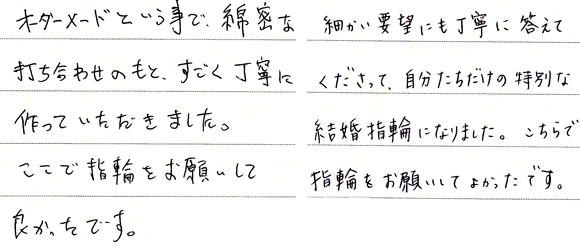 オーダーメードという事で、綿密な
打ち合わせのもと、すごく丁寧に
作っていただきました。
ここで指輪をお願いして
良かったです。
細かい要望にも丁寧に答えて
くださって、自分たちだけの特別な
結婚指輪になりました。こちらで
指輪をお願いしてよかったです。